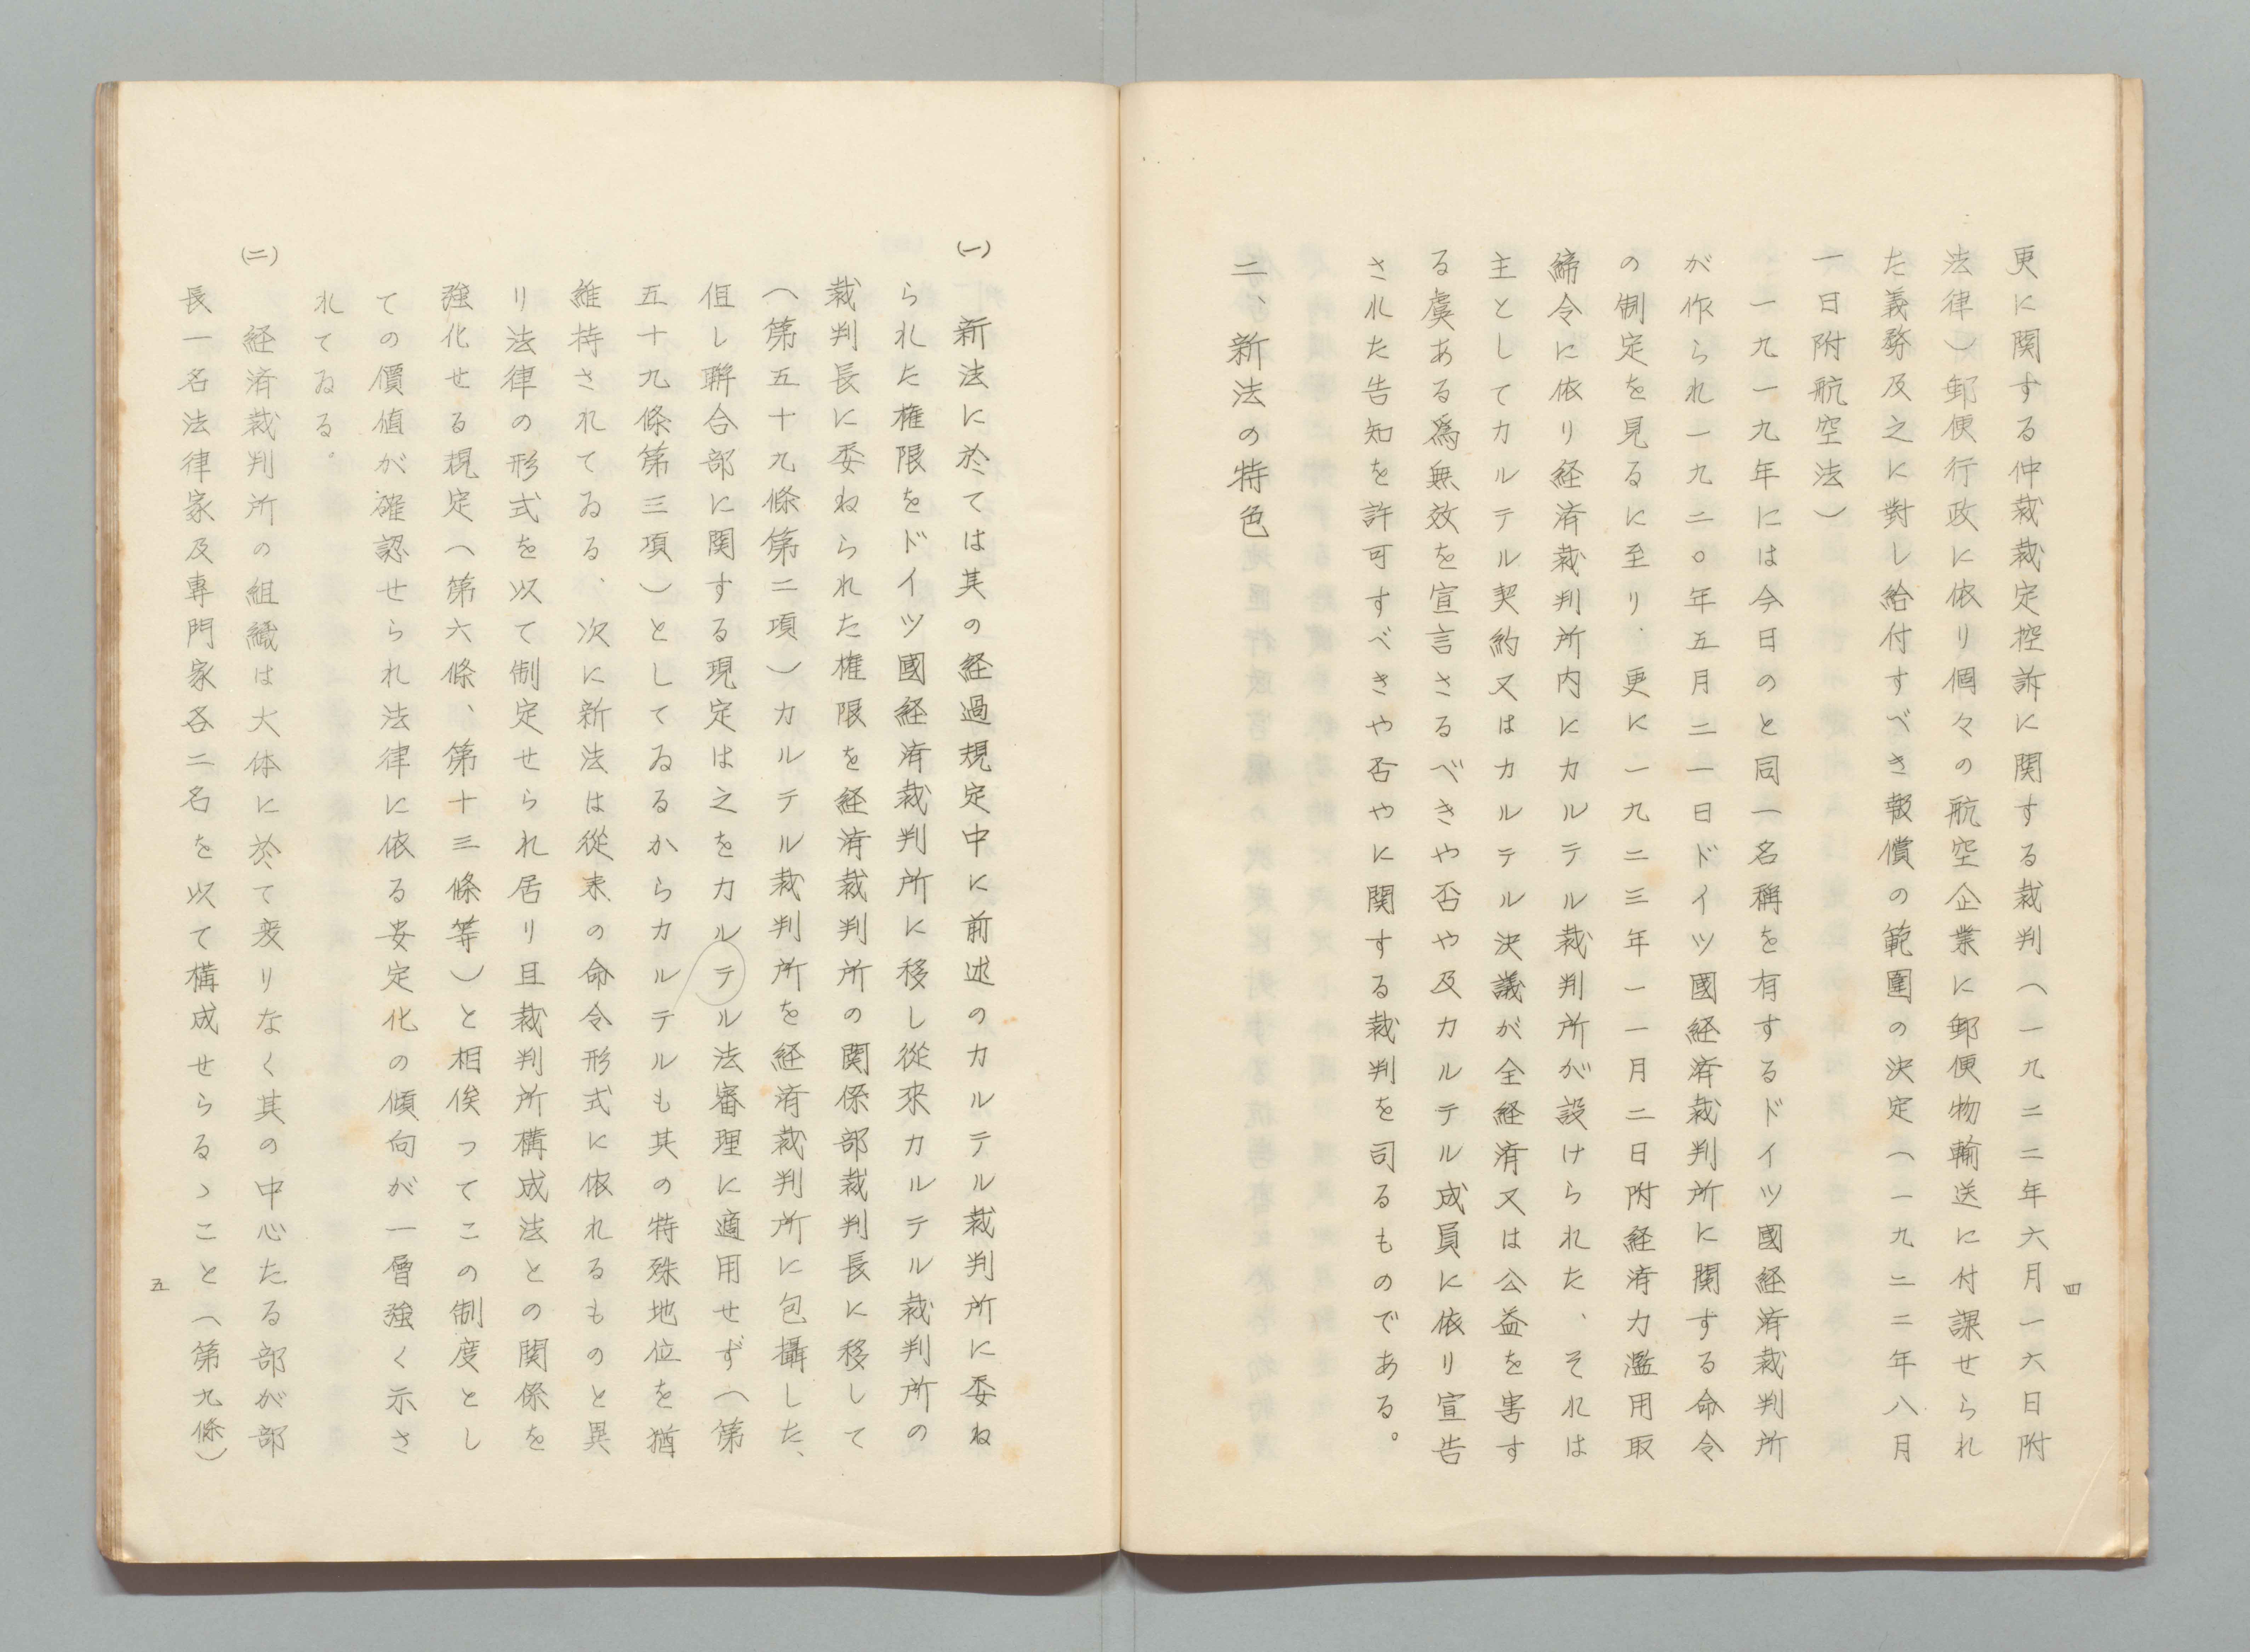 更に関する仲裁裁定控訴に関する裁判（一九二二年六月一六日附
法律）郵便行政に依り個々の航空企業に郵便物輸送に付課せられ
た義務及之に對し給付すべき報償の範圍の決定（一九二二年八月
一日附航空法）
一九一九年には今日のと同一名稱を有するドイツ國経済裁判所
が作られ一九二〇年五月二一日ドイツ國経済裁判所に関する命令
の制定を見るに至り、更に一九二三年一一月二日附経済力濫用取
締令に依り経済裁判所内にカルテル裁判所が設けられた、それは
主としてカルテル契約又はカルテル決議が全経済又は公益を害す
る虞ある爲無效を宣言さるべきや否や及カルテル成員に依り宣告
された告知を許可すべきや否やに関する裁判を司るものである。
二、新法の特色
四
(一)
新法に於ては其の経過規定中に前述のカルテル裁判所に委ね
られた権限をドイツ國経済裁判所に移し從來カルテル裁判所の
裁判長に委ねられた権限を経済裁判所の関係部裁判長に移して
（第五十九條第二項）カルテル裁判所を経済裁判所に包攝した、
但し聨合部に関する現定は之をカルテル法審理に適用せず（第
五十九條第三項）としてゐるからカルテルも其の特殊地位を猶
維持されてゐる、次に新法は從来の命令形式に依れるものと異
り法律の形式を以て制定せられ居り且裁判所構成法との関係を
強化せる規定（第六條、第十三條等）と相俟つてこの制度とし
ての價値が確認せられ法律に依る安定化の傾向が一層強く示さ
れてゐる。
(二)
経済裁判所の組織は大体に於て変りなく其の中心たる部が部
長一名法律家及専門家各二名を以て構成せらるゝこと（第九條）
五